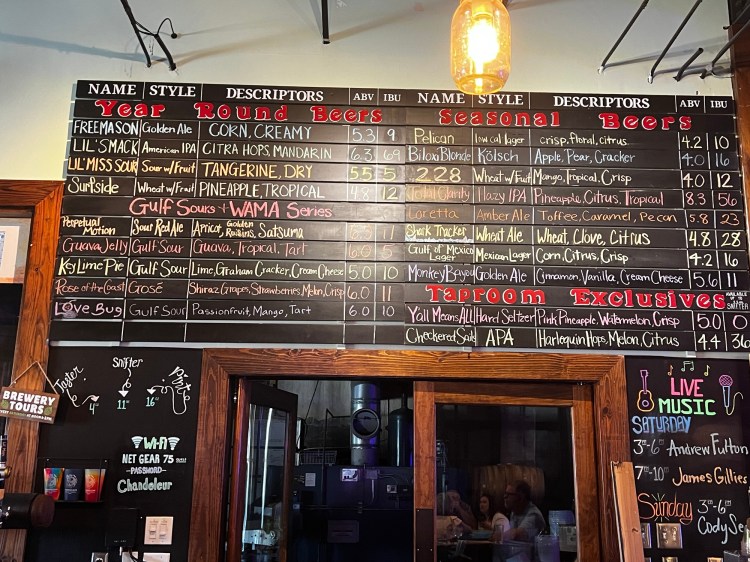 NAME STYLE DESCRIPTORS ABV IBU
Year Round Beers
FREEMASON Golden Ale CORN, CREAMY 5.3 9
LIL' SMACK American IPA CITRA HOPS, MANDARIN 6.3 69
LIL' MISS SOUR Sour w/ Fruit TANGERINE, DRY 5.5 5
Surfside Wheat w/ Fruit PINEAPPLE, TROPICAL 4.8 12
Gulf Sours + WAMA Series
Perpetual Motion Sour Red Ale Apricot, Golden Raisins, Satsuma
Guava Jelly Gulf Sour Guava, Tropical, Tart 6.0 5
Key Lime Pie Gulf Sour Lime, Graham Cracker, Cream Cheese 5.0 10
Rose of the Coast Grosé Shiraz Grapes, Strawberries, Melon, Crisp 6.0 11
Love Bug Gulf Sour Passionfruit, Mango, Tart 6.0 10
NAME STYLE DESCRIPTORS ABV IBU
Seasonal Beers
Pelican low cal lager crisp, floral, citrus 4.2 10
Biloxi Blonde Kölsch Apple, Pear, Cracker 4.0 16
228 Wheat w/ Fruit Mango, Tropical, Crisp 4.0 12
Clarity Hazy IPA Pineapple, Citrus, Tropical 8.3 56
Loretta Amber Ale Toffee, Caramel, Pecan 5.8 23
Shark Tracker Wheat Ale Wheat, Clove, Citrus 4.8 28
Gulf of Mexico Lager Mexican Lager Corn, Citrus, Crisp 4.2 16
Monkey Bayou Golden Ale Cinnamon, Vanilla, Cream Cheese 5.6 11
Taproom Exclusives
Y'all Means ALL Hard Seltzer Pink Pineapple, Watermelon, Crisp 5.0 0
Checkered Sails APA Harlequin Hops, Melon, Citrus 4.4 36
Taster 4"
Snifter 11"
16" Pint
BREWERY TOURS
WI-FI
NET GEAR 75
-PASSWORD-
Chandeleur
LIVE
MUSIC
SATURDAY
3-6 Andrew Futton
7-10 James Gillies
Sunday 3-6
Cody